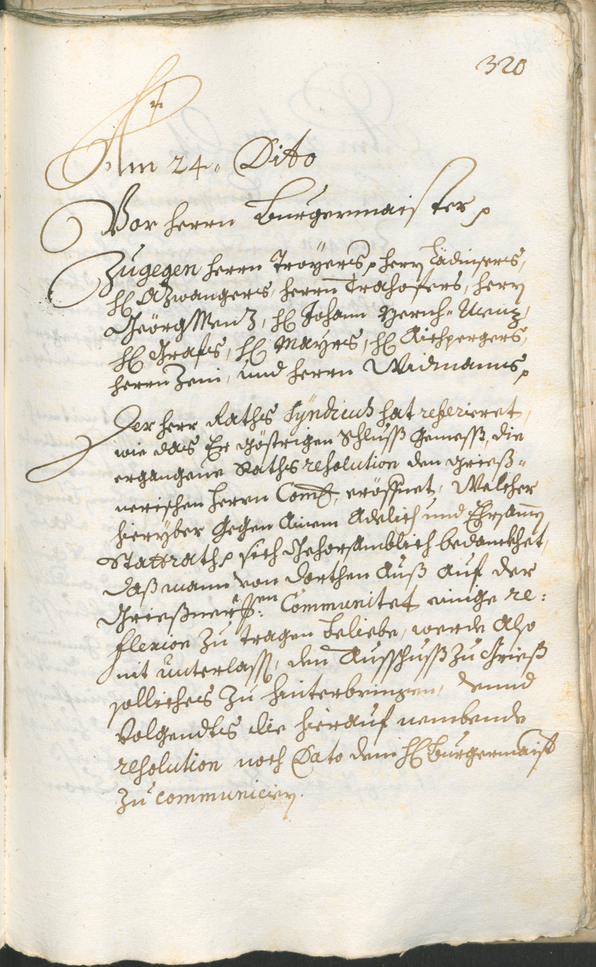 320
Am 24. Dito
Vor herrn Burgermaister
Zugegen herrn Troyers, herr Ladiners,
hℓ Azwangers, herrn Trahofers, herr
Geörg Menz, hℓ Johann Menz,
hℓ Grafs, hℓ Mayrs, hℓ Aichpergers,
herrn Zeni, und herrn Widmanns
Der herr Raths Syndicus hat referieret,
wie das Er göstrigen Schluss gemess, die
ergangene Raths resolution den Grieß-
nerischen herrn eröffnet, Welcher
hieryber gegen Ainem Adelich und Ehrsamm
Stattrath sich gehorsamblich bedankhet,
daß mann von dorthen Auß auf der
Grießnerisℓen Communitet ainige re:
flexion zu tragen beliebe, werde Also
nit unterlassℓ, den Ausschuß zu Grieß
solliches zu hinterbringen, dennd
Volgendts die hierauf nembende
resolution noch Dato dem hℓ Burgermaist
zu communicirn.